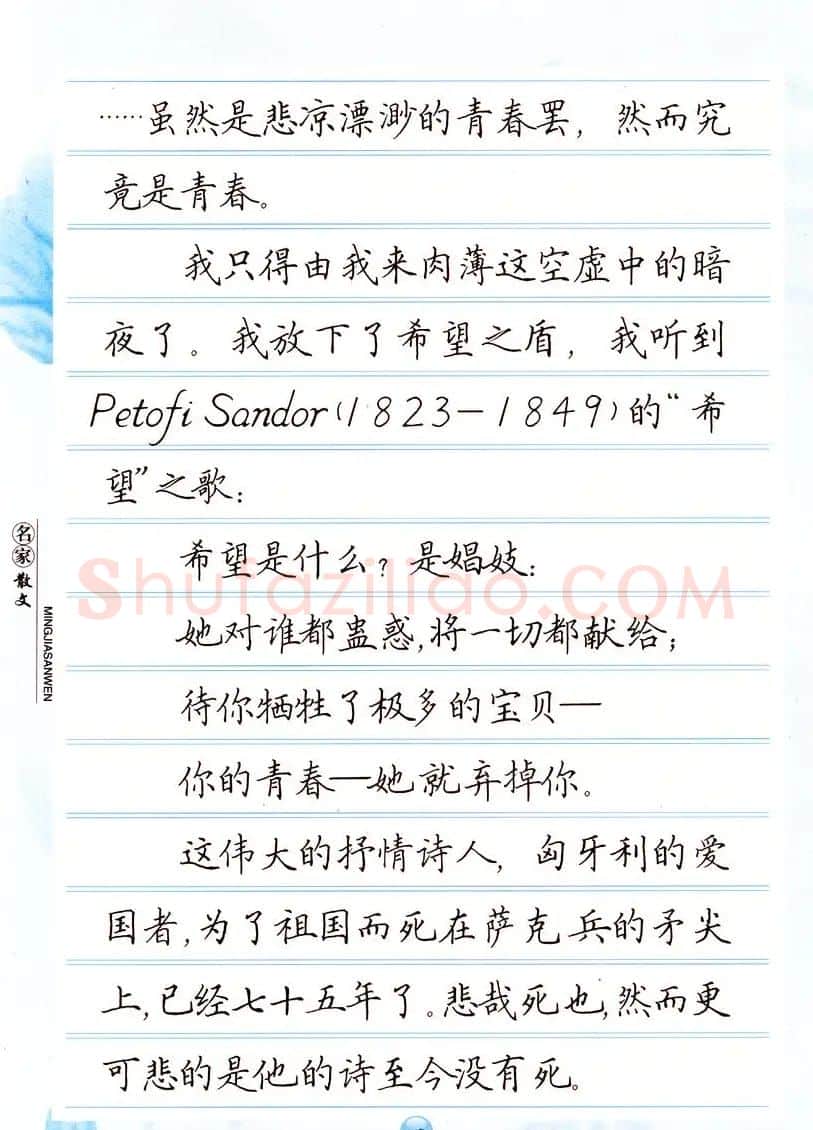 ……虽然是悲凉漂渺的青春罢，然而究
竟是青春。
我只得由我来肉薄这空虚中的暗
夜了。我放下了希望之盾，我听到
Petofi Sandor(1823-1849)的“希
望”之歌：
希望是什么？是娼妓：
她对谁都蛊惑，将一切都献给；
待你牺牲了极多的宝贝—
你的青春—她就弃掉你。
这伟大的抒情诗人，匈牙利的爱
国者，为了祖国而死在萨克兵的矛尖
上，已经七十五年了。悲哉死也，然而更
可悲的是他的诗至今没有死。
名家散文
MINGJIASANWEN
Shufaziliao.COM